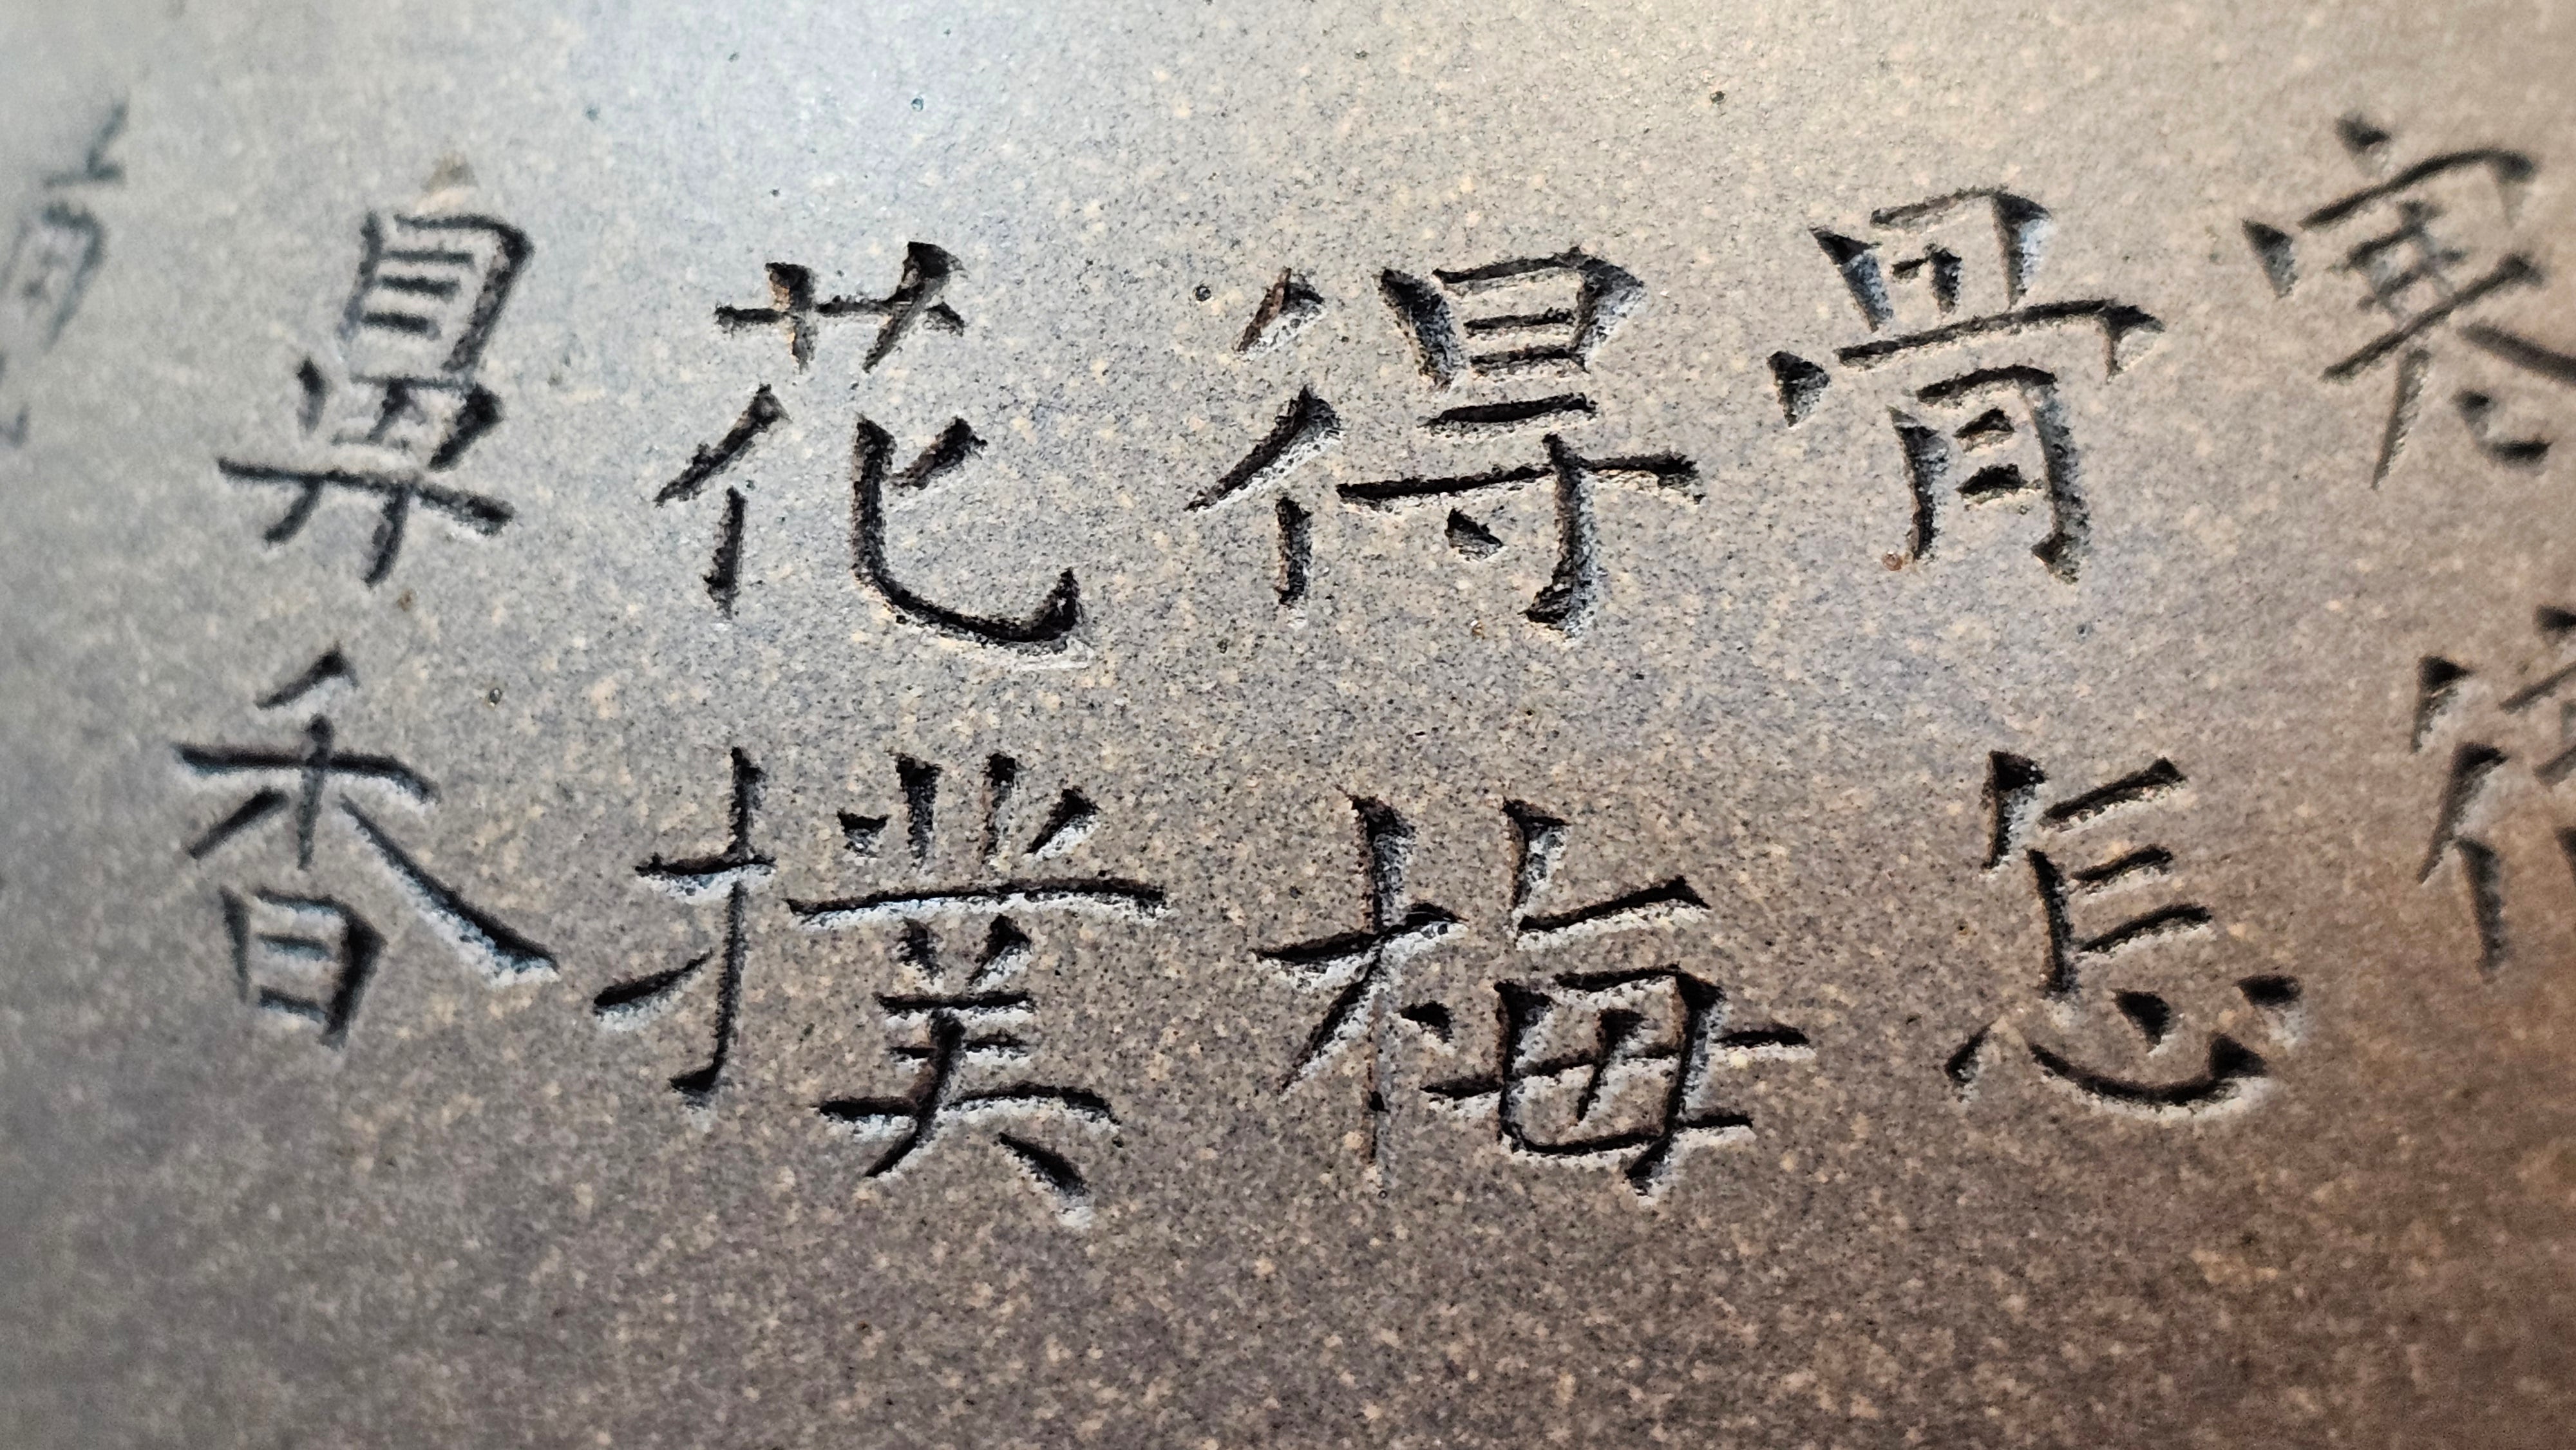 寒
骨怎
得梅
花撲
鼻香